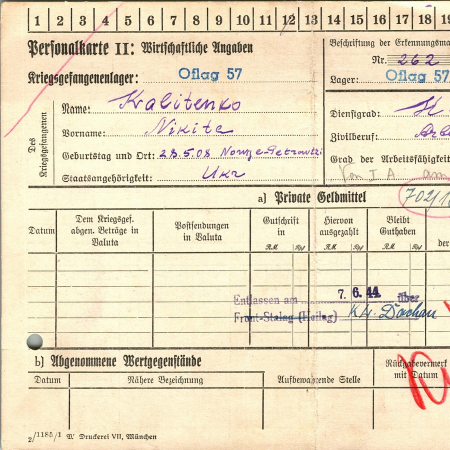 1 2 3 4 5 6 7 8 9 10 11 12 13 14 15 16 17 18 19
Personalkarte II: Wirtschaftliche Angaben
Beschriftung der Erkennungsma
Nr. 262
Kriegsgefangenenlager: Oflag 57
Lager: Oflag 57
Des Kriegsgefangenen
Name: Kralitenko
Dienstgrad:
Vorname: Nikita
Zivilberuf:
Geburtstag und Ort: 28.5.08
Grad der Arbeitsfähigkeit
Staatsangehörigkeit: Ukr
a) Private Geldmittel
Datum
Dem Kriegsgef. abgen. Beträge in Valuta
Postsendungen in Valuta
Gutschrift in
RM Rpf
Hiervon ausgezahlt
RM Rpf
Bleibt Guthaben
RM Rpf
der
Entlassen am 7. 6. 44 über
Front-Stalag (Heilag) KL. Dachau
b) Abgenommene Wertgegenstände
Rückgabevermerk mit Datum
Datum
Nähere Bezeichnung
Aufbewahrende Stelle
2/1185/1 D. Druckerei VII, München